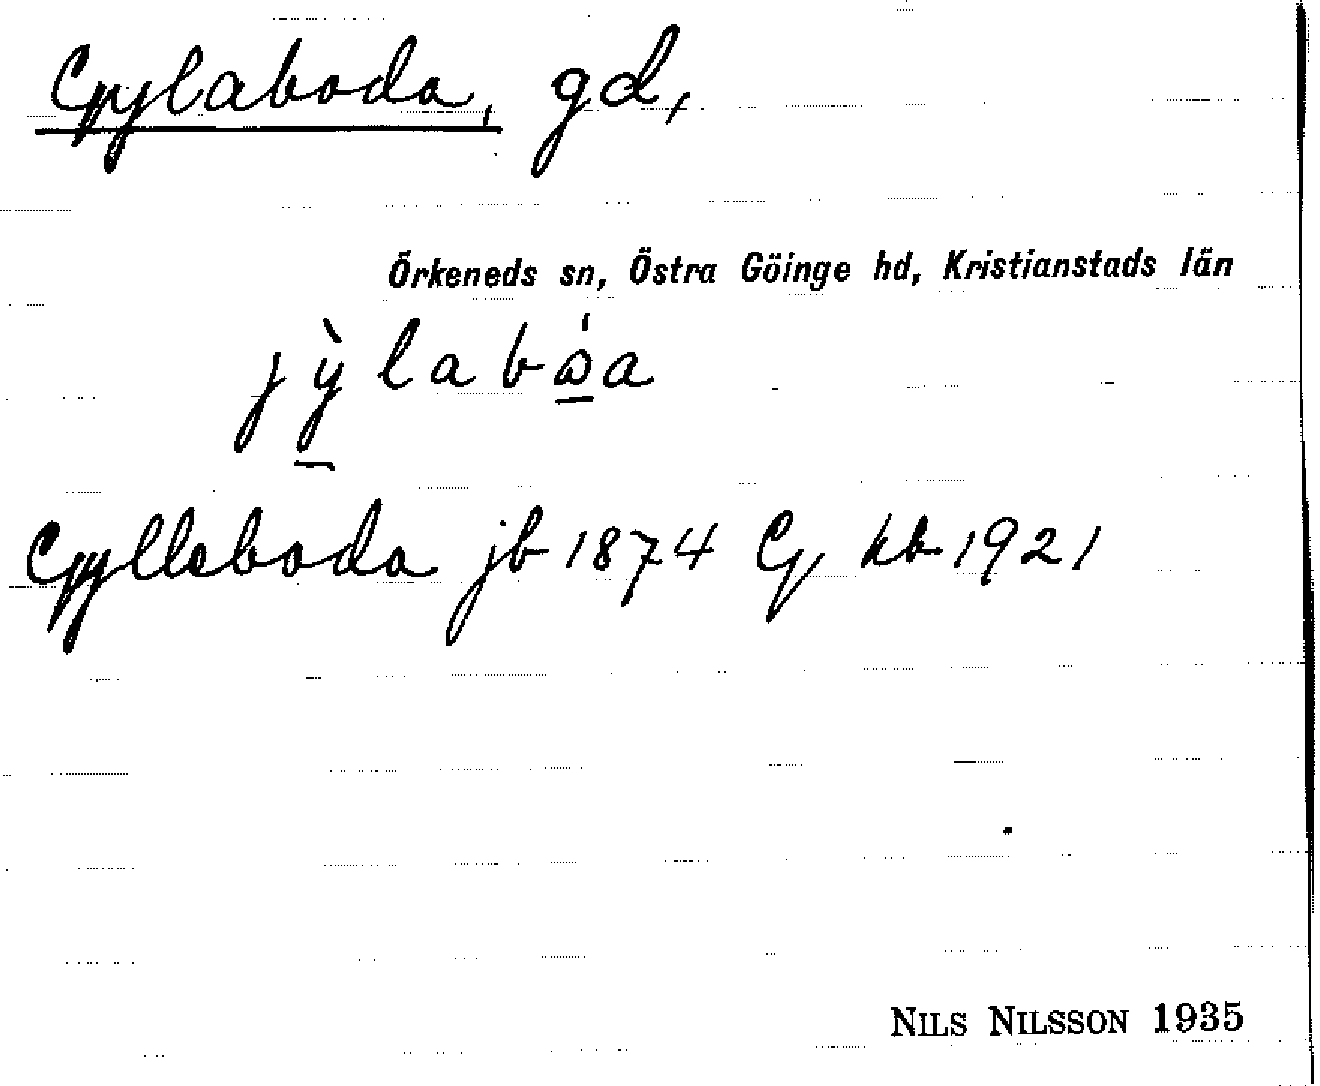 Gylaboda, gd,
Örkeneds sn, Östra Göinge hd, Kristianstads län
jỳ̱labώ̱a
Gylleboda jb 1874 G kb 1921
NILS NILSSON 1935